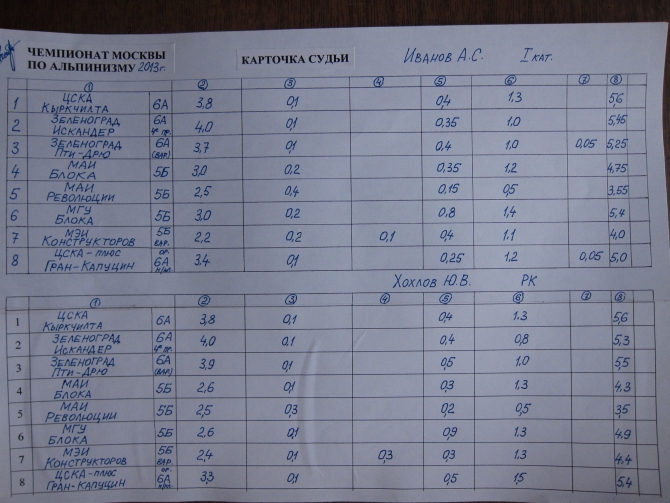 ЧЕМПИОНАТ МОСКВЫ
ПО АЛЬПИНИЗМУ 2013г.
КАРТОЧКА СУДЬИ
ИВАНОВ А.С. I КАТ.
① ② ③ ④ ⑤ ⑥ ⑦ ⑧
1 ЦСКА КЫРКЧИЛТА 6А 3,8 0,1 0,4 1.3 5,6
2 ЗЕЛЕНОГРАД ИСКАНДЕР 6А 4,0 0,1 0,35 1.0 5,45
3 ЗЕЛЕНОГРАД ПТИ-ДРЮ 6А (ВАР) 3,7 0,1 0.4 1.0 0,05 5,25
4 МАИ БЛОКА 5Б 3,0 0.2 0,35 1.2 4,75
5 МАИ РЕВОЛЮЦИИ 5Б 2,5 0,4 0.15 0,5 3.55
6 МГУ БЛОКА 5Б 3,0 0.2 0.8 1.4 5,4
7 МЭИ КОНСТРУКТОРОВ 5Б ВАР. 2,2 0,2 0,1 0,4 1.1 4,0
8 ЦСКА-ПЛЮС ГРАН-КАПУЦИН 6А 3.4 0.1 0,25 1.2 0,05 5,0
ХОХЛОВ Ю.В. РК
① ② ③ ④ ⑤ ⑥ ⑦ ⑧
1 ЦСКА КЫРКЧИЛТА 6А 3,8 0,1 0,4 1.3 5,6
2 ЗЕЛЕНОГРАД ИСКАНДЕР 6А 4,0 0.1 0.4 0,8 5,3
3 ЗЕЛЕНОГРАД ПТИ-ДРЮ 6А (ВАР) 3,9 0,1 0,5 1.0 5,5
4 МАИ БЛОКА 5Б 2,6 0,1 0,3 1.3 4,3
5 МАИ РЕВОЛЮЦИИ 5Б 2,5 0,3 0,2 0,5 3,5
6 МГУ БЛОКА 5Б 2,6 0,1 0,9 1.3 4.9
7 МЭИ КОНСТРУКТОРОВ 5Б ВАР. 2,4 0,1 0,3 0,3 1.3 4.4
8 ЦСКА-ПЛЮС ГРАН-КАПУЦИН 6А 3,3 0,1 0,5 1,5 5.4